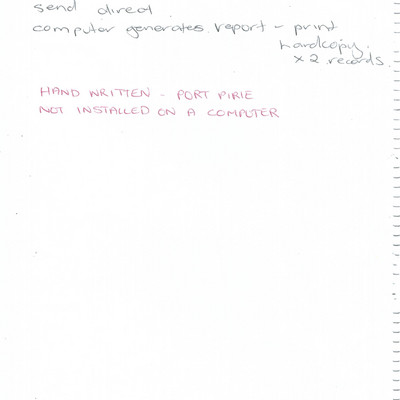 send direct
computer generates report - print
hardcopy.
x 2 records.
HAND WRITTEN - PORT PIRIE
NOT INSTALLED ON A COMPUTER